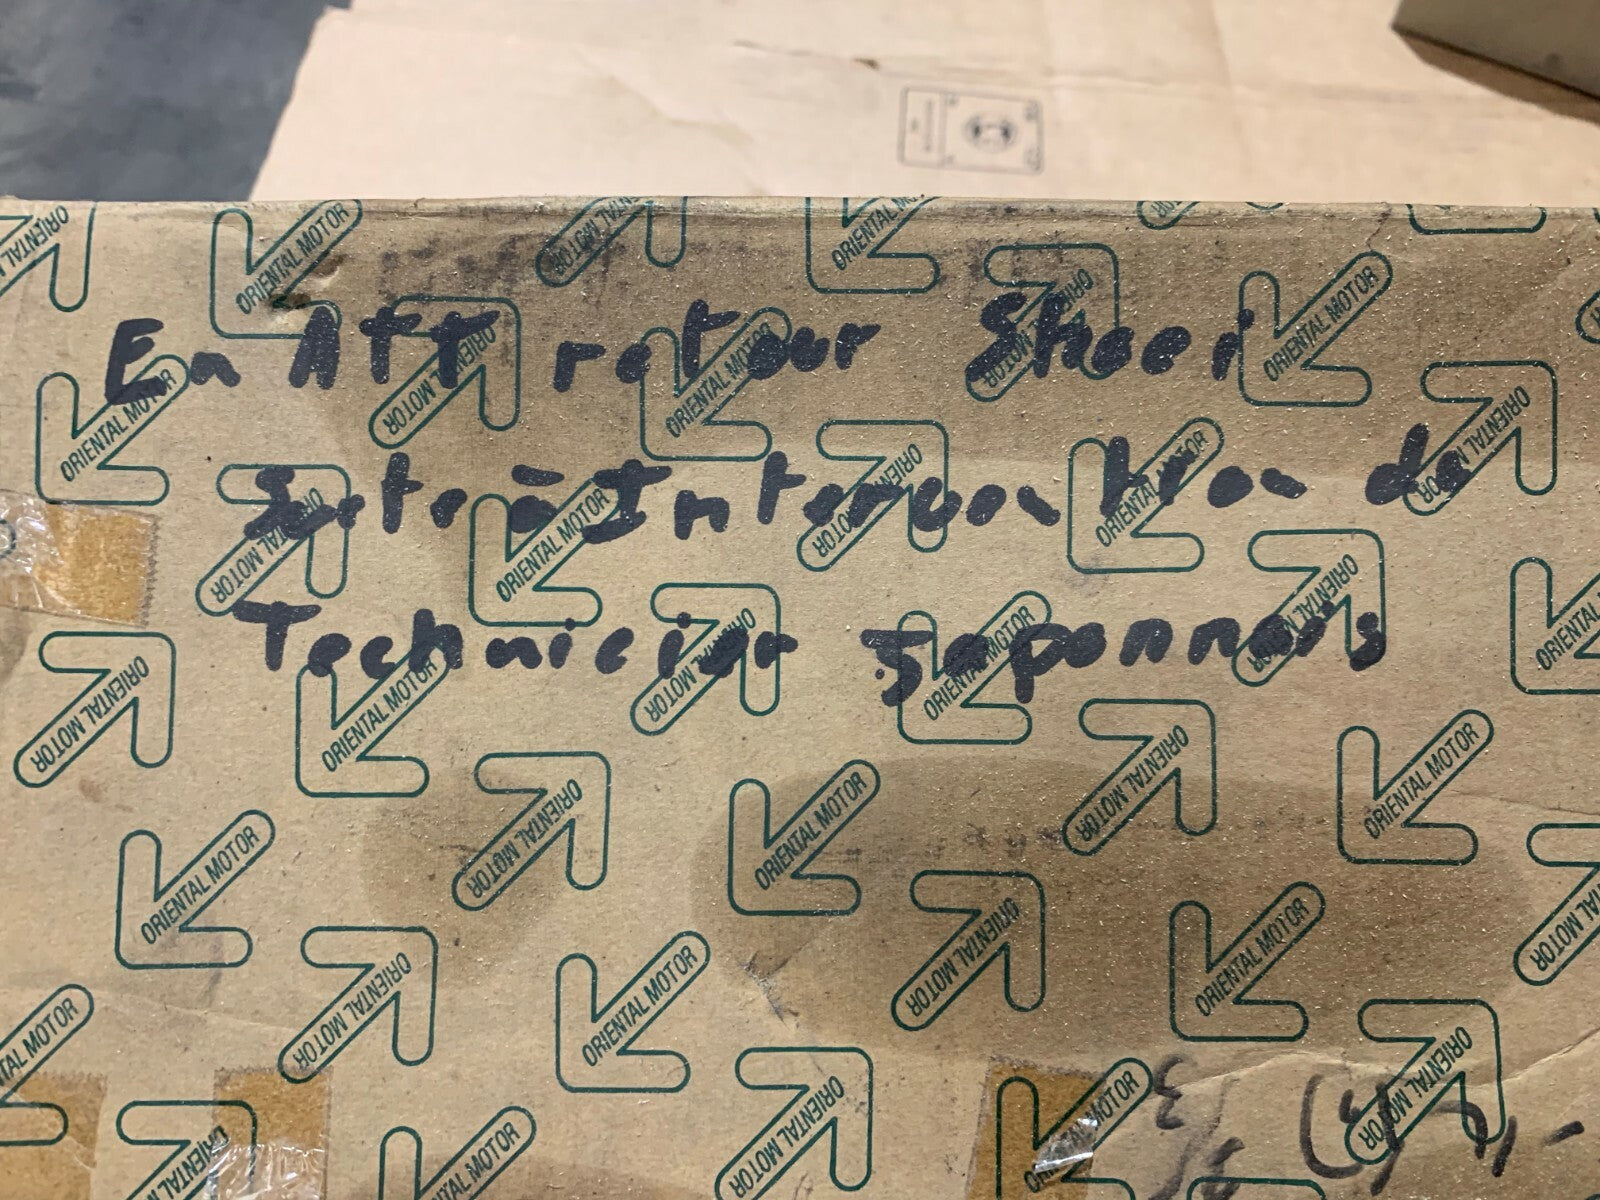 En Att retour Sheei
Suite à Intervention de
Technicien Japonnais
ORIENTAL MOTOR